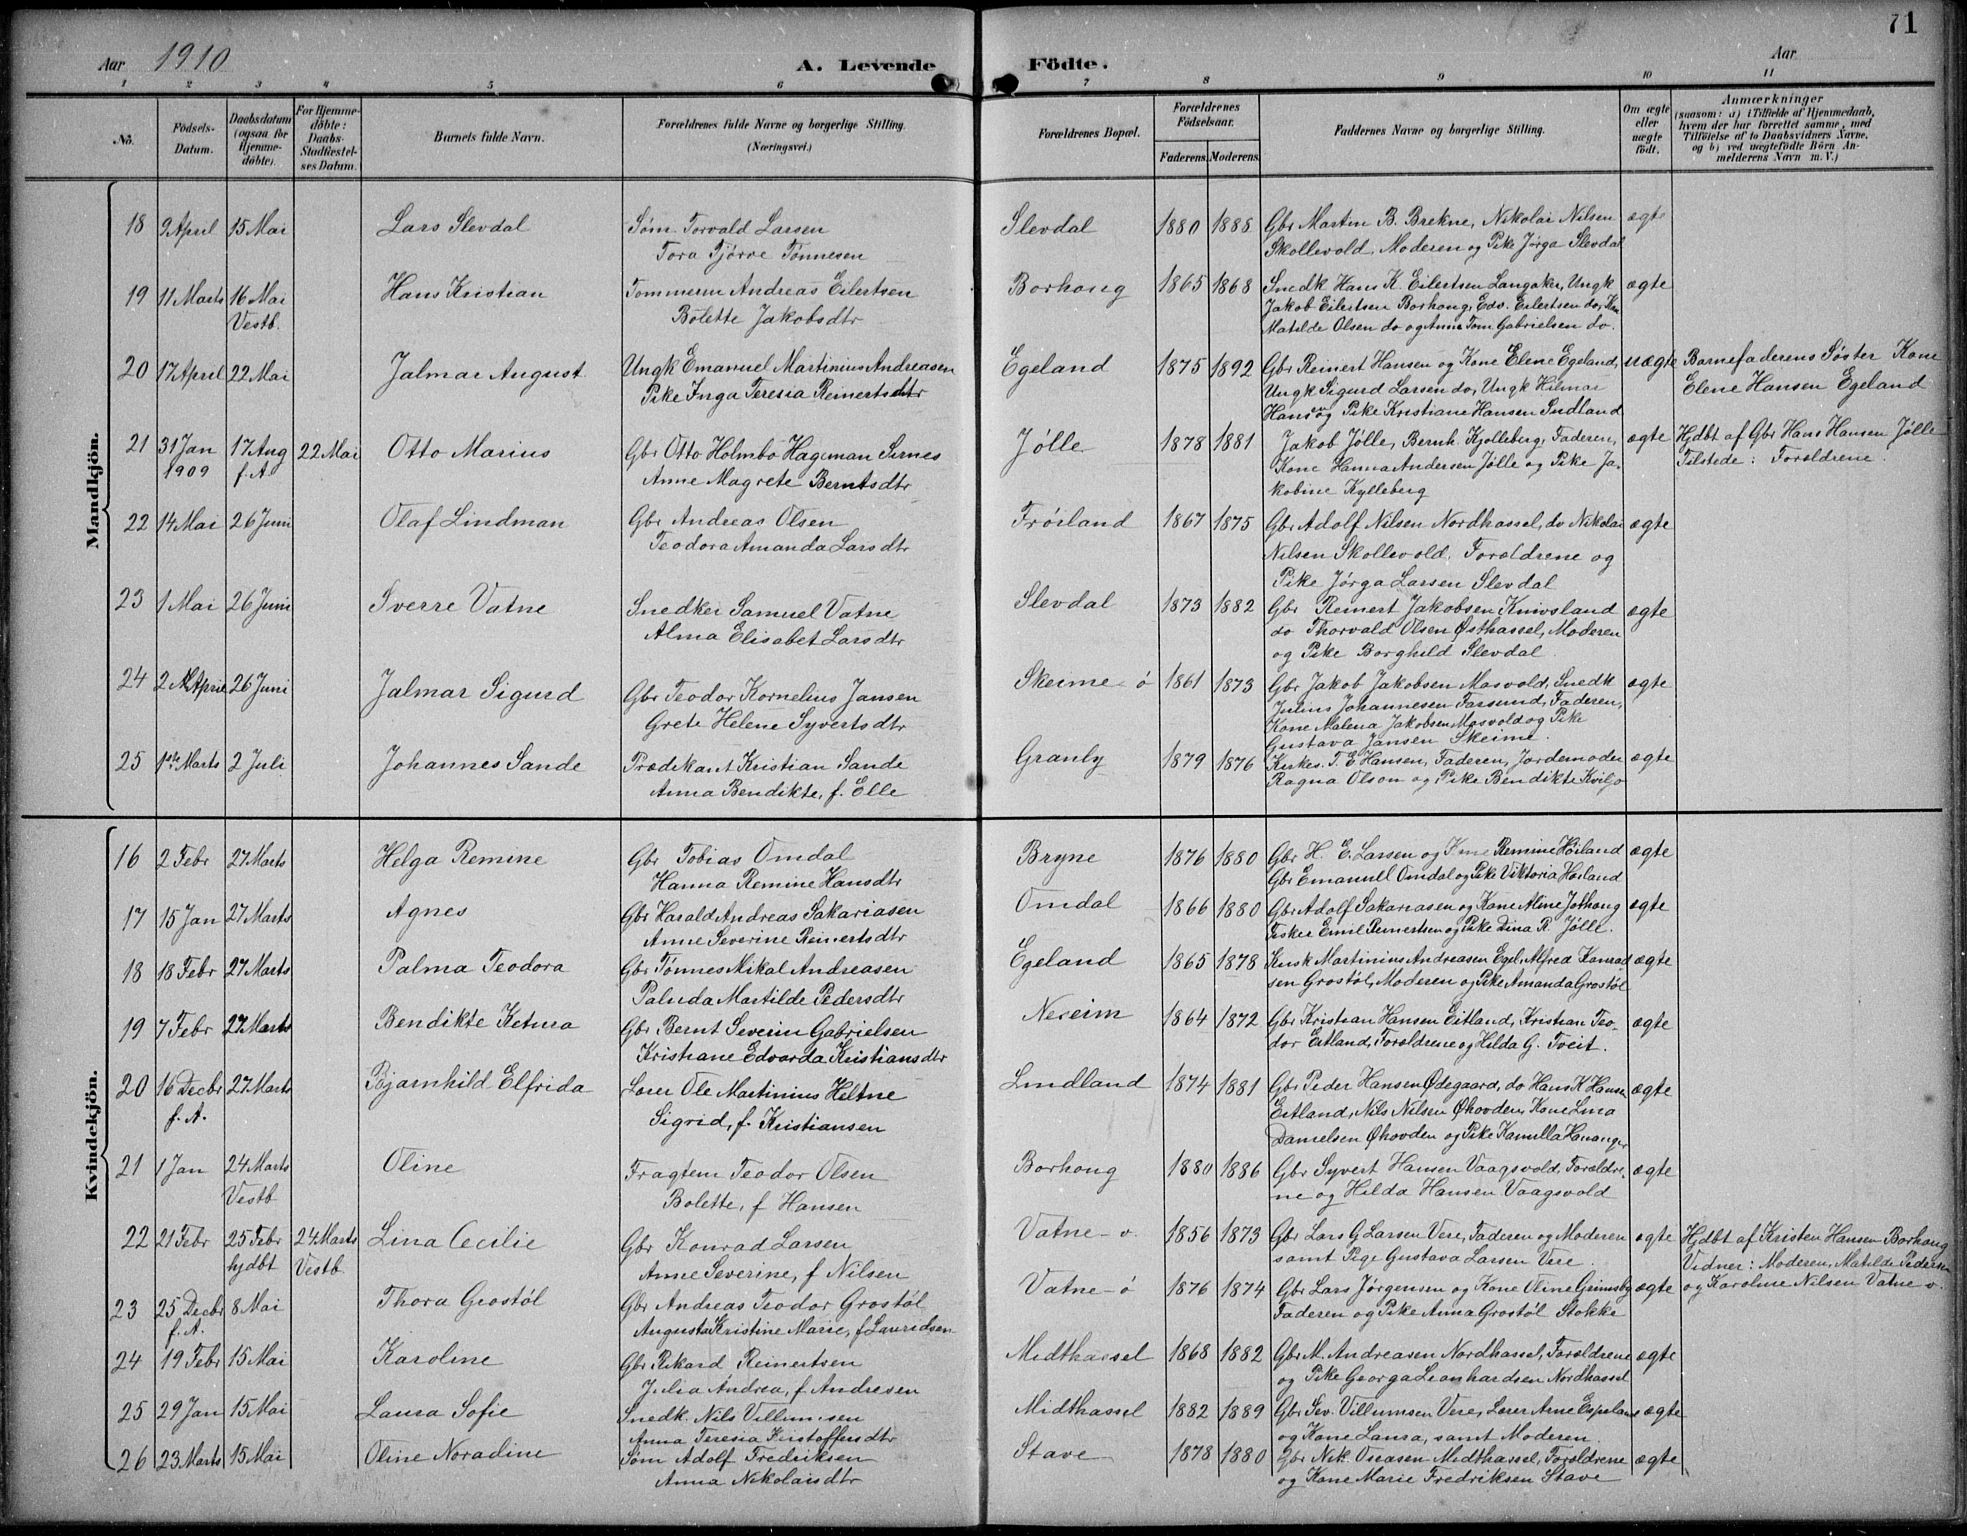 71
Aar 1910 A. Levende Födte. Aar
1 2 3 4 5 6 7 8 9 10 11
No. Födsels-Datum. Daabsdatum (ogsaa for Hjemmedöbte). For Hjemmedöbte: Daabs-Stadfæstelses Datum. Barnets fulde Navn. Forældrenes fulde Navne og borgerlige Stilling. (Næringsvei.) Forældrenes Bopæl. Forældrenes Födselsaar. Faderens. Moderens. Faddernes Navne og borgerlige Stilling. Om ægte eller uægte födt. Anmærkninger (saasom: a) i Tilfælde af Hjemmedaab, hvem der har forrettet samme, med Tilföielse af to Daabsvidners Navne, og b) ved uægtefödte Börn Anmelderens Navn m. V.)
Mandkjön.
18 2 April 15 Mai Lars Slevdal Søm. Torvald Larsen Slevdal 1880 1888 Gbr Martin B. Brekne, Nikolai Nilsen ægte
Tora Tjørve Tønnesen Skollevold, Moderen og Pike Jørga Slevdal
19 11 Marts 16 Mai Hans Kristian Tømmerm Andreas Eilertsen Borhoug 1865 1868 Snedk Hans K. Eilertsen Langaker, Ungk ægte
Vestb. Bolette Jakobsdtr Jakob Eilertsen Borhoug, Edv. Eilertsen do, Kone
Matilde Olsen do og Anna Tom. Gabrielsen do.
20 17 April 22 Mai Jalmar August Ungk Emanuel Martinius Andreasen Egeland 1875 1892 Gbr Reinert Hansen og Kone Elene Egeland, uægte Barnefaderens Søster Kone
Pike Inga Teresia Reinertsdtr Ungk Sigurd Larsen do, Ungk Hilmar Elene Hansen Egeland
Hansen og Pike Kristiane Hansen Sudland
21 31 Jan 17 Aug 22 Mai Otto Marius Gbr Otto Holmbo Hageman Sirnes Jølle 1878 1881 Jakob Jølle, Bernh. Kjolleberg, Faderen, ægte Hjdbt af Gbr Hans Hansen Jølle
1909 f. A. Anne Magrete Berntsdtr Kone Hanna Andersen Jølle og Pike Ja- Tilstede: Forældrene.
kobine Kylleberg
22 14 Mai 26 Juni Olaf Lindman Gbr Andreas Olsen Frøisland 1867 1875 Gbr Adolf Nilsen Nordhassel, do Nikolai ægte
Teodora Amanda Larsdtr Nilsen Skollevold. Forældrene og
Pike Jørga Larsen Slevdal
23 1 Mai 26 Juni Sverre Vatne Snedker Samuel Vatne Slevdal 1873 1882 Gbr Reinert Jakobsen Knivsland ægte
Alma Elisabet Larsdtr do Thorvald Olsen Østhassel, Moderen
og Pike Borghild Slevdal
24 2 April 26 Juni Jalmar Sigurd Gbr Teodor Kornelius Jansen Skeime ø 1861 1873 Gbr Jakob Jakobsen Mosvold, Snedk ægte
Grete Helene Syvertsdtr Julius Johannesen Farsund, Faderen,
Kone Malena Jakobsen Mosvold og Pike
Gustava Jansen Skeime.
25 1ste Marts 2 Juli Johannes Sande Prædikant Kristian Sande Granly 1879 1876 Kirkes. T. E Hansen, Faderen, Jordemoder ægte
Anna Bendikte, f. Elle Ragna Olson og Pike Bendikte Kviljo
Kvindekjön.
16 2 Febr 27 Marts Helga Remine Gbr Tobias Omdal Bryne 1876 1880 Gbr H. E. Larsen og Kone Remine Høiland ægte
Hanna Remine Hansdtr Gbr Emanuel Omdal og Pike Viktoria Høiland
17 15 Jan 27 Marts Agnes Gbr Harald Andreas Sakariasen Omdal 1866 1880 Gbr Adolf Sakariasen og Kone Aline Jøthoug ægte
Anne Severine Reinertsdtr Fisker Emil Reinertsen og Pike Dina R. Jølle.
18 18 Febr 27 Marts Palma Teodora Gbr Tønnes Mikal Andreasen Egeland 1865 1878 Kusk Martinius Andreasen Egel, Alfred Konrad- ægte
Paluda Martilde Pedersdtr sen Grostøl, Moderen og Pike Amanda Grostøl
19 7 Febr 27 Marts Bendikte Ketura Gbr Bernt Severin Gabrielsen Neseim 1864 1872 Gbr Kristian Hansen Eitland, Kristian Teo- ægte
Kristiane Edvarda Kristiansdtr dor Eitland, Forældrene og Hilda G. Tveit.
20 16 Decbr 27 Marts Bjarnhild Elfrida Lærer Ole Martinius Heltne Lindland 1874 1881 Gbr Peder Hansen Ødegaard, do Hans K Hansen ægte
f. A. Sigrid, f. Kristiansen Eitland, Nils Nilsen Øhovden, Kone Lina
Danielsen Øhovden og Pike Kamilla Hananger
21 1 Jan 24 Marts Oline Fragtem Teodor Olsen Borhoug 1880 1886 Gbr Syvert Hansen Vaagsvold, Forældre- ægte
Vestb Bolette, f Hansen ne og Hilda Hansen Vaagsvold
22 21 Febr 25 Febr 24 Marts Lina Cecilie Gbr Konrad Larsen Vatne - v. 1856 1873 Gbr Lars G Larsen Vere, Faderen og Moderen ægte Hjdbt af Kristen Hansen Borhaug
hjdbt Vestb Anne Severine, f Nilsen samt Pige Gustava Larsen Vere. Vidner: Moderen, Matilde Pedersen
23 25 Decbr 8 Mai Thora Grostøl Gbr Andreas Teodor Grostøl Vatne - ø 1876 1874 Gbr Lars Jørgensen og Kone Oline Grimsby ægte og Karoline Nilsen Vatne v.
f. A. Augusta Kristine Marie, f Lauridsen Faderen og Pike Anna Grostøl Stokke
24 19 Febr 15 Mai Karoline Gbr Rikard Reinertsen Midthassel 1868 1882 Gbr M. Andreasen Nordhassel, Forældrene ægte
Julia Andrea, f. Andresen og Pike Georga Leonhardsen Nordhassel
25 29 Jan 15 Mai Laura Sofie Snedk. Nils Villumsen Midthassel 1882 1889 Gbr Sev. Villumsen Vere, Lærer Arne Espeland ægte
Anna Teresia Kristoffersdtr og Kone Laura, samt Moderen.
26 23 Marts 15 Mai Oline Noradine Søm Adolf Fredriksen Stave 1878 1880 Gbr Nik. Oseasen Midthassel, Forældrene ægte
Anna Nikolaisdtr og Kone Marie Fredriksen Stave